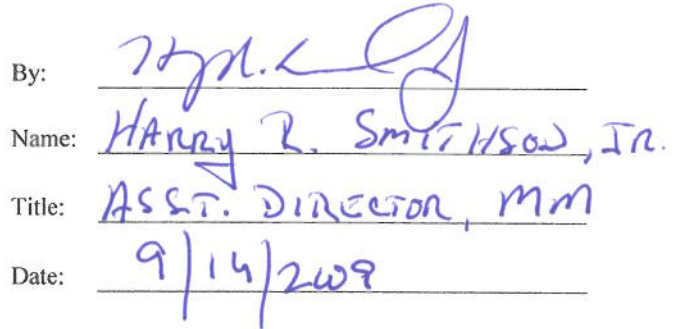 By:
Name: HARRY R. SMITHSON, JR.
Title: ASST. DIRECTOR, MM
Date: 9/14/2009